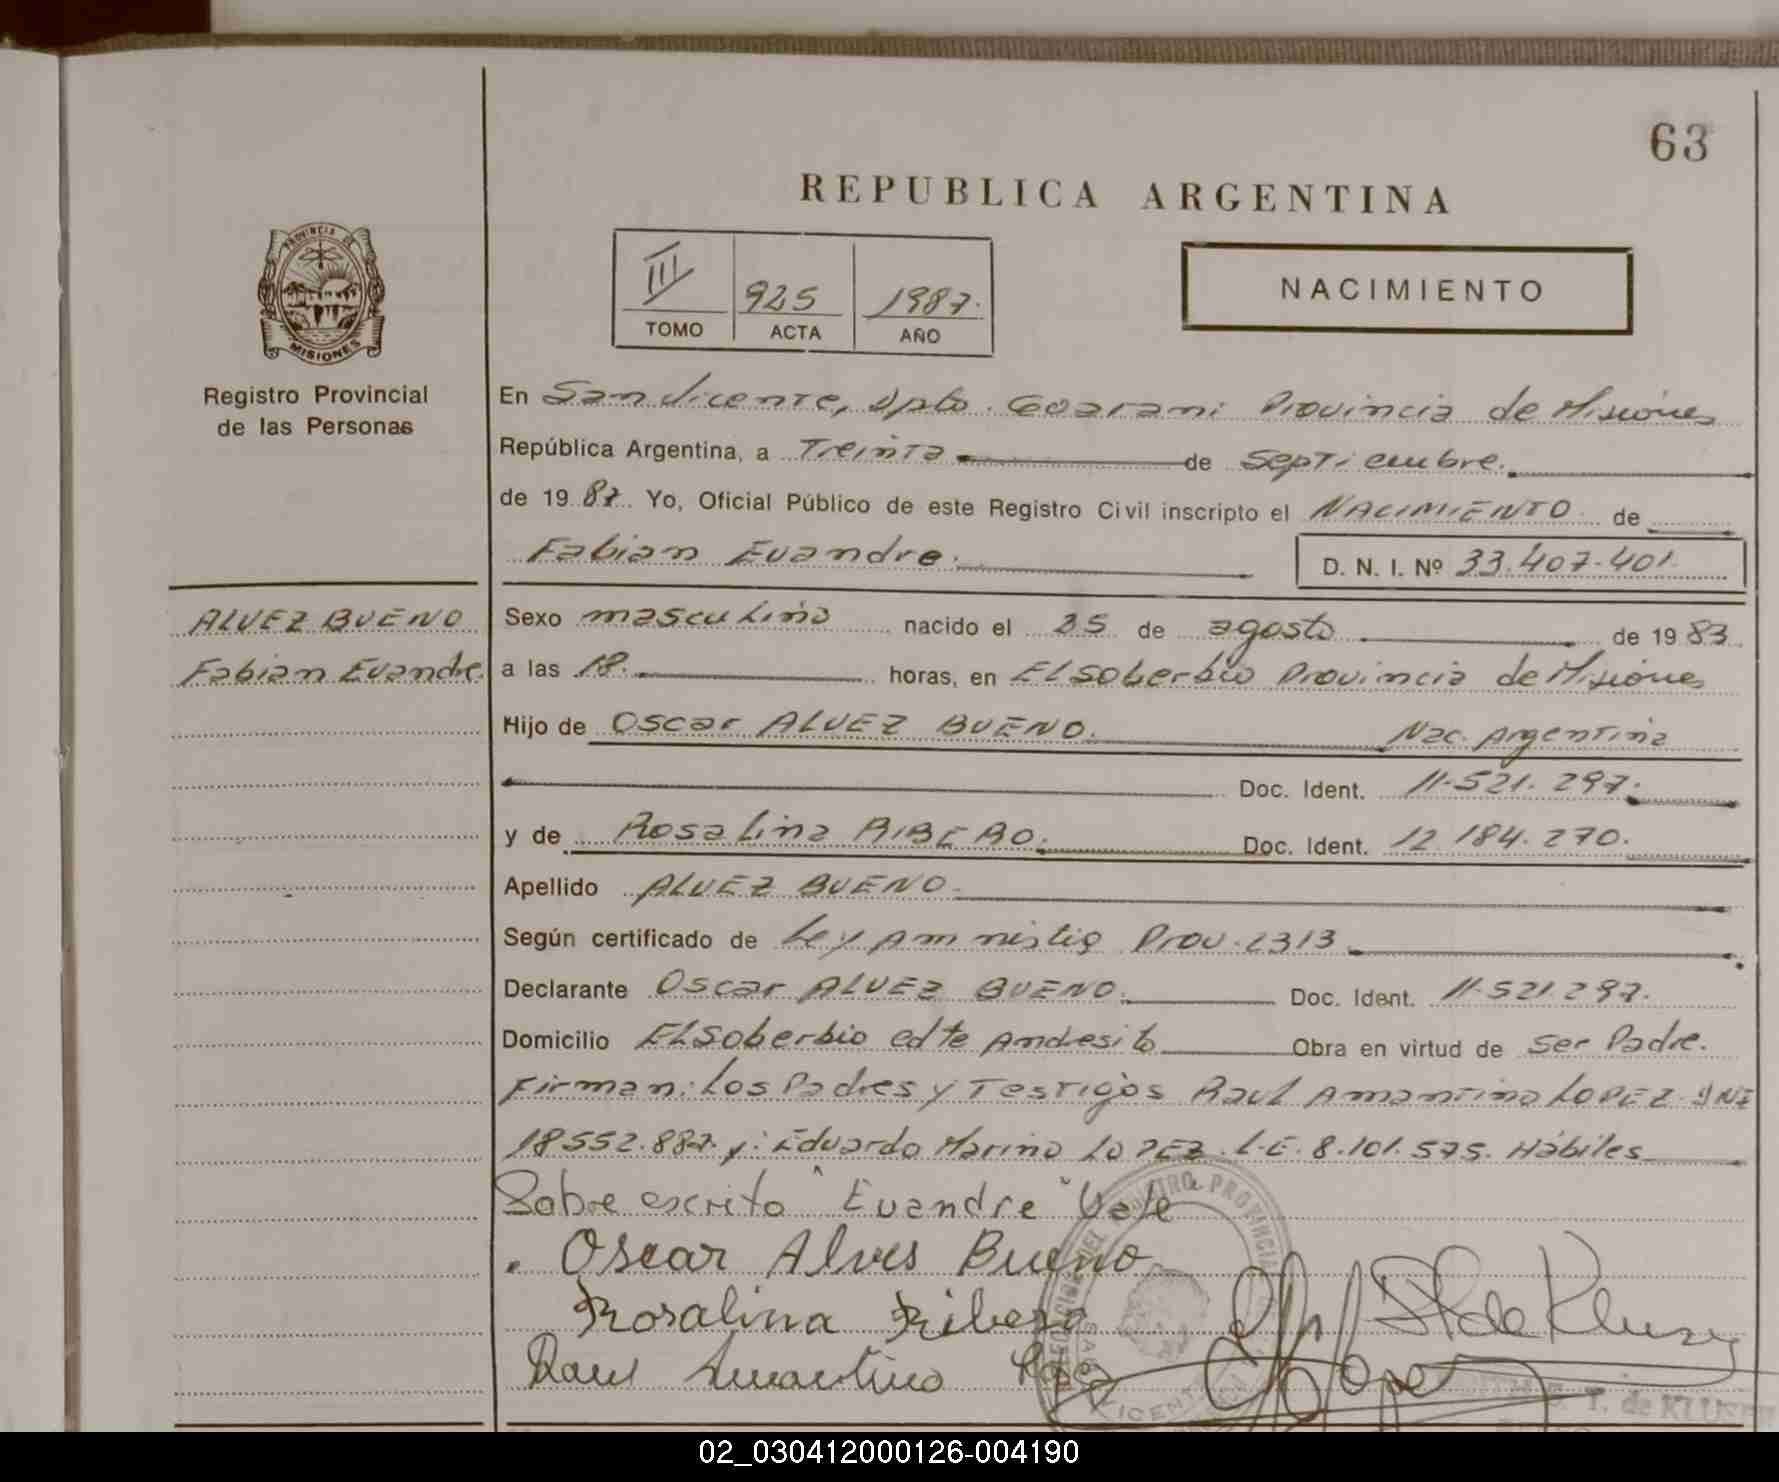 63
REPUBLICA ARGENTINA
PROVINCIA DE
MISIONES
III 925 1987.
TOMO ACTA AÑO
NACIMIENTO
Registro Provincial
de las Personas
En San Vicente, Dpto. Guarani Provincia de Misiones
República Argentina, a Treinta de Septiembre.
de 19 87. Yo, Oficial Público de este Registro Civil inscripto el NACIMIENTO de
Fabian Evandre. D. N. I. Nº 33.407.401.
ALVEZ BUENO
Fabian Evandre.
Sexo masculino nacido el 25 de agosto de 19 83
a las 18. horas, en El Soberbio Provincia de Misiones
Hijo de Oscar ALVEZ BUENO. Nac. Argentina
Doc. Ident. 11.521.297.
y de Rosalina RIBERO. Doc. Ident. 12.184.270.
Apellido ALVEZ BUENO.
Según certificado de Ley Amnistia Prov. 2313
Declarante Oscar ALVEZ BUENO. Doc. Ident. 11.521.297.
Domicilio El Soberbio edte Andresito Obra en virtud de ser Padre.
Firman: Los Padres y Testigos Raul Amantino LOPEZ. DNI
18552.887. y: Eduardo Marino LOPEZ. L.E. 8.101.575. Hábiles
Sobre escrito "Evandre" Vale
Oscar Alves Bueno
Rosalina Ribero
Raul Amantino
T. de KLUSE
02_030412000126-004190